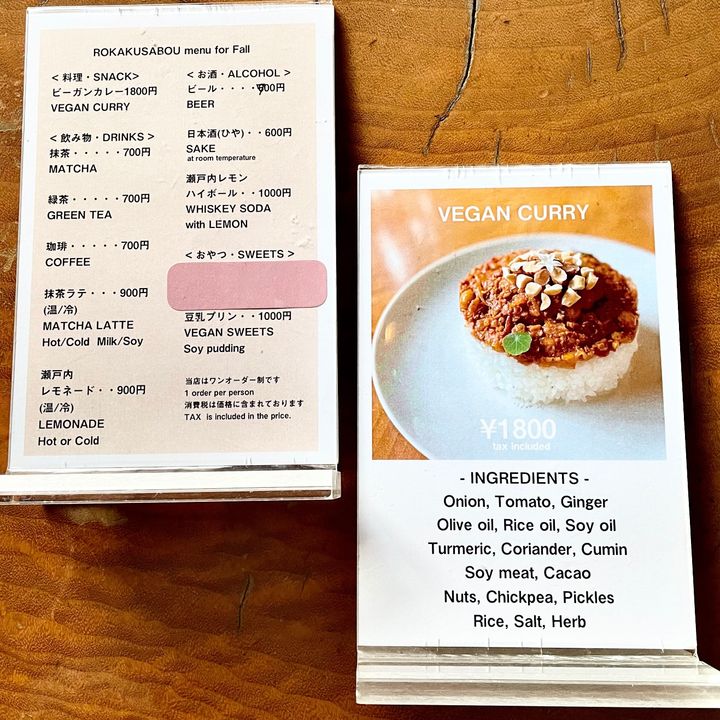 ROKAKUSABOU menu for Fall
< 料理・SNACK>
ビーガンカレー1800円
VEGAN CURRY
< 飲み物・DRINKS >
抹茶・・・・・700円
MATCHA
緑茶・・・・・700円
GREEN TEA
珈琲・・・・・700円
COFFEE
抹茶ラテ・・・900円
(温/冷)
MATCHA LATTE
Hot/Cold Milk/Soy
瀬戸内
レモネード・・900円
(温/冷)
LEMONADE
Hot or Cold
< お酒・ALCOHOL >
ビール・・・・900円
BEER
日本酒(ひや)・・600円
SAKE
at room temperature
瀬戸内レモン
ハイボール・・1000円
WHISKEY SODA
with LEMON
< おやつ・SWEETS >
豆乳プリン・・1000円
VEGAN SWEETS
Soy pudding
当店はワンオーダー制です
1 order per person
消費税は価格に含まれております
TAX is included in the price.
VEGAN CURRY
¥1800
tax included
- INGREDIENTS -
Onion, Tomato, Ginger
Olive oil, Rice oil, Soy oil
Turmeric, Coriander, Cumin
Soy meat, Cacao
Nuts, Chickpea, Pickles
Rice, Salt, Herb